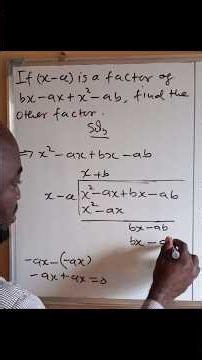 If (x-a) is a factor of
bx-ax+x²-ab, find the
other factor.
Soln
⇒ x²-ax+bx-ab
x+b
x-a x²-ax+bx-ab
x²-ax
bx-ab
bx-a
-ax-(-ax)
-ax+ax=0